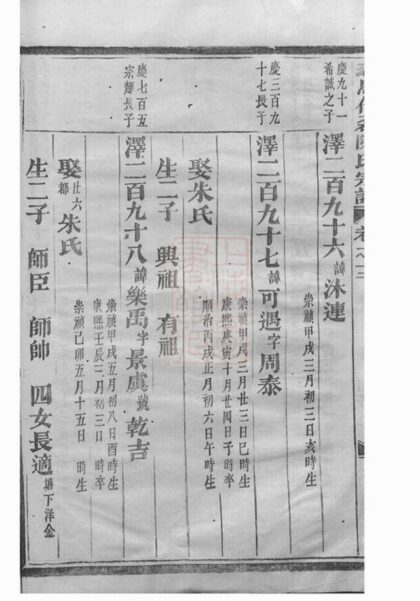 慶九十一
希誠之子
澤二百九十六諱沐連
崇禎甲戌二月初三日亥時生
慶三百九
十七長子
澤二百九十七諱可遇字周泰
崇禎甲戌三月廿三日巳時生
康熙庚寅十月廿四日子時卒
娶朱氏
順治丙戌正月初六日午時生
生二子 興祖 有祖
慶七百五
宗輝長子
澤二百九十八諱樂禹字景虞號乾吉
崇禎甲戌五月初八日酉時生
康熙壬辰三月初三日 時卒
娶廿六都朱氏
崇禎己卯五月十五日 時生
生二子 師臣 師帥 四女長適塘下洋金